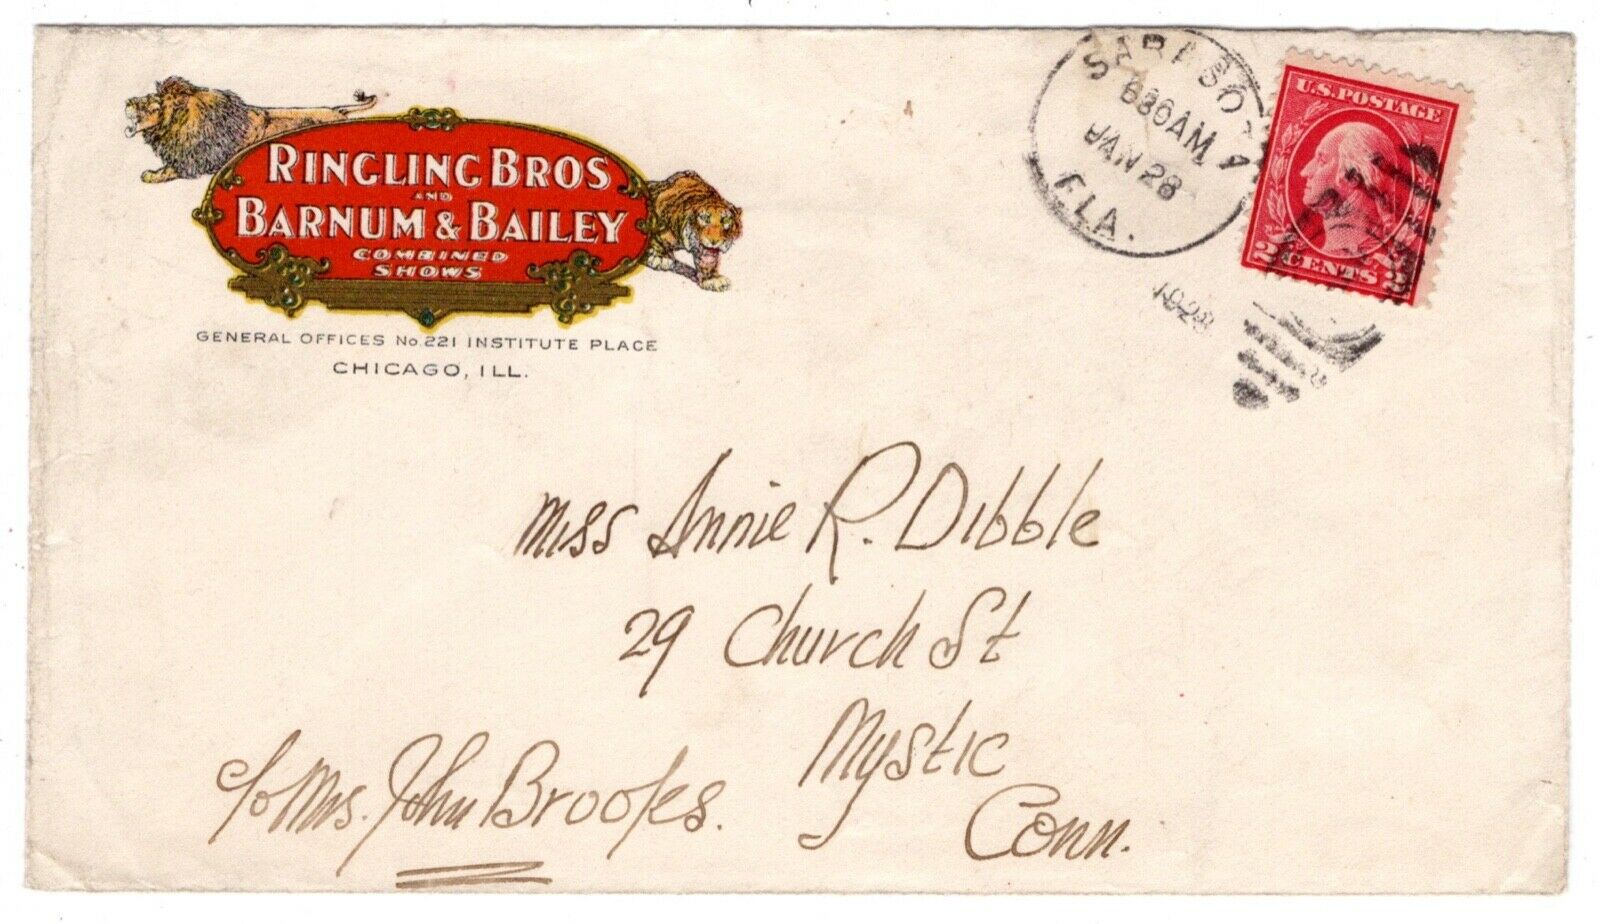 RINGLING BROS
AND
BARNUM & BAILEY
COMBINED
SHOWS
GENERAL OFFICES No. 221 INSTITUTE PLACE
CHICAGO, ILL.
SARASOTA
630AM
JAN 28
FLA.
U.S. POSTAGE
2 CENTS 2
Miss Annie R. Dibble
29 Church St
Mystic
Conn.
c/o Mrs. John Brooks.